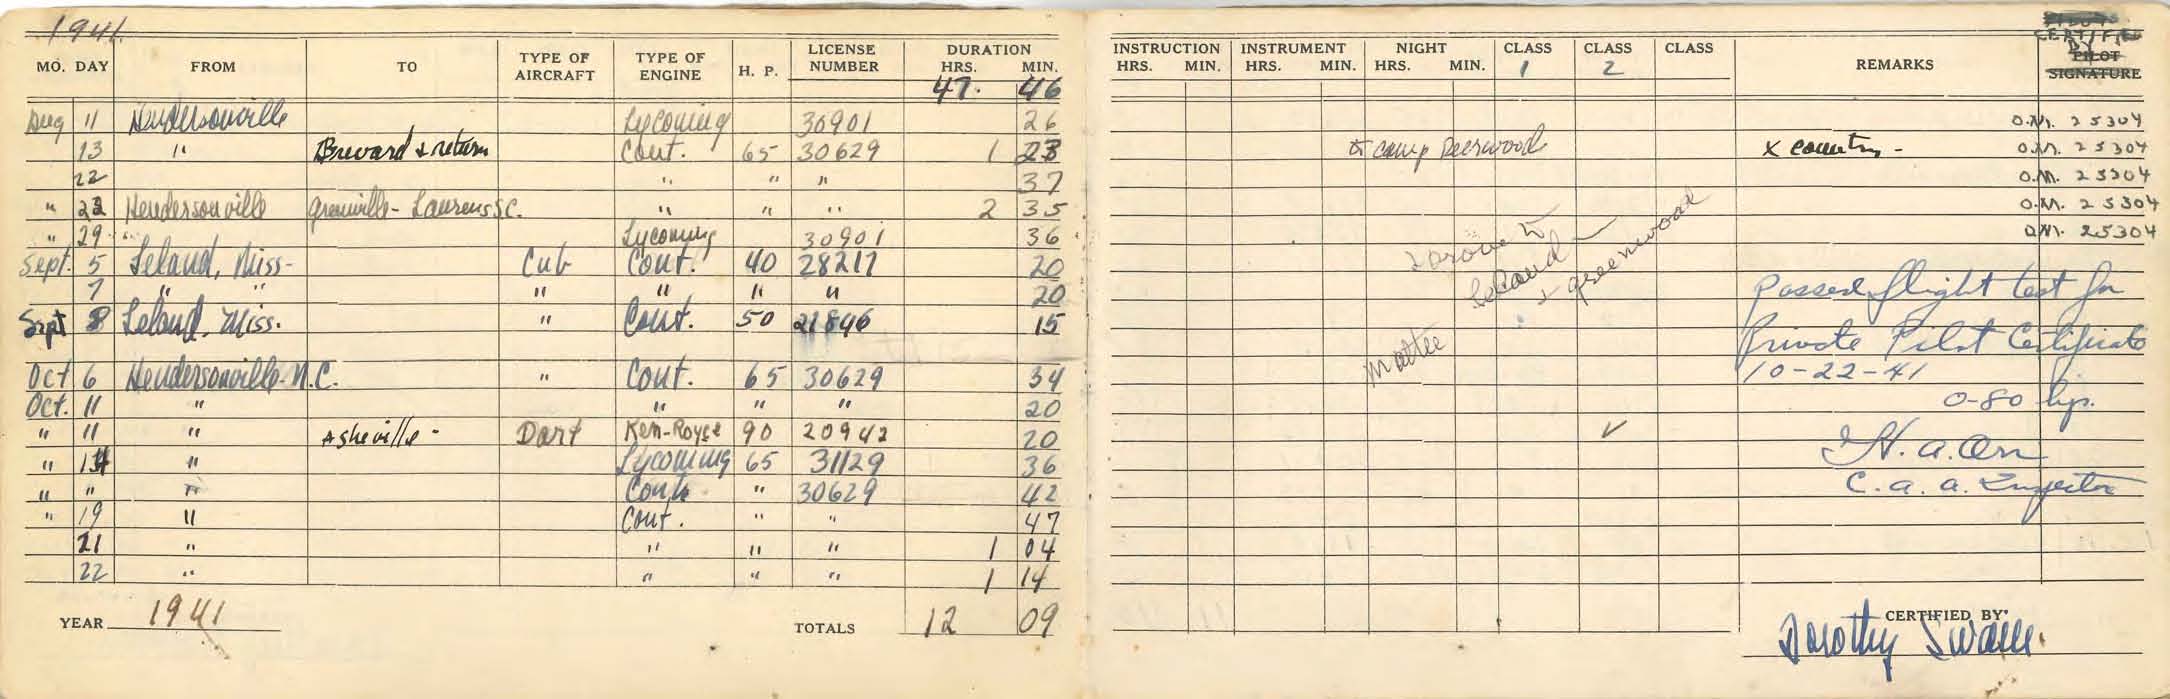 1941.
MO. DAY FROM TO TYPE OF AIRCRAFT TYPE OF ENGINE H. P. LICENSE NUMBER DURATION HRS. MIN. INSTRUCTION HRS. MIN. INSTRUMENT HRS. MIN. NIGHT HRS. MIN. CLASS 1 CLASS 2 CLASS REMARKS CERTIFIED BY PILOT SIGNATURE
47. 46
Aug 11 Hendersonville Lycoming 30901 26 O.M. 25304
13 " Brevard & return Cont. 65 30629 1 23 to camp Deerwood X country - O.M. 25304
22 " " " 37 O.M. 25304
" 23 Hendersonville Greenville - Laurens S.C. " " " 2 35 O.M. 25304
" 29 " Lycoming 30901 36 O.M. 25304
Sept. 5 Leland, Miss- Cub Cont. 40 28217 20 Leland & Greenwood
7 " " " " " " 20 Passed flight test for
Sept 8 Leland, Miss. " Cont. 50 21846 15 Private Pilot Certificate
Oct 6 Hendersonville N.C. " Cont. 65 30629 34 10-22-41
Oct. 11 " " " " 20 0-80 hp.
" 11 " Asheville - Dart Ken-Royce 90 20942 20 ✓ H. A. Orr
" 14 " Lycoming 65 31129 36 C. A. A. Inspector
" " " Cont. " 30629 42
" 19 " Cont. " " 47
21 " " " " 1 04
22 " " " " 1 14
YEAR 1941 TOTALS 12 09 CERTIFIED BY
Dorothy Swain.